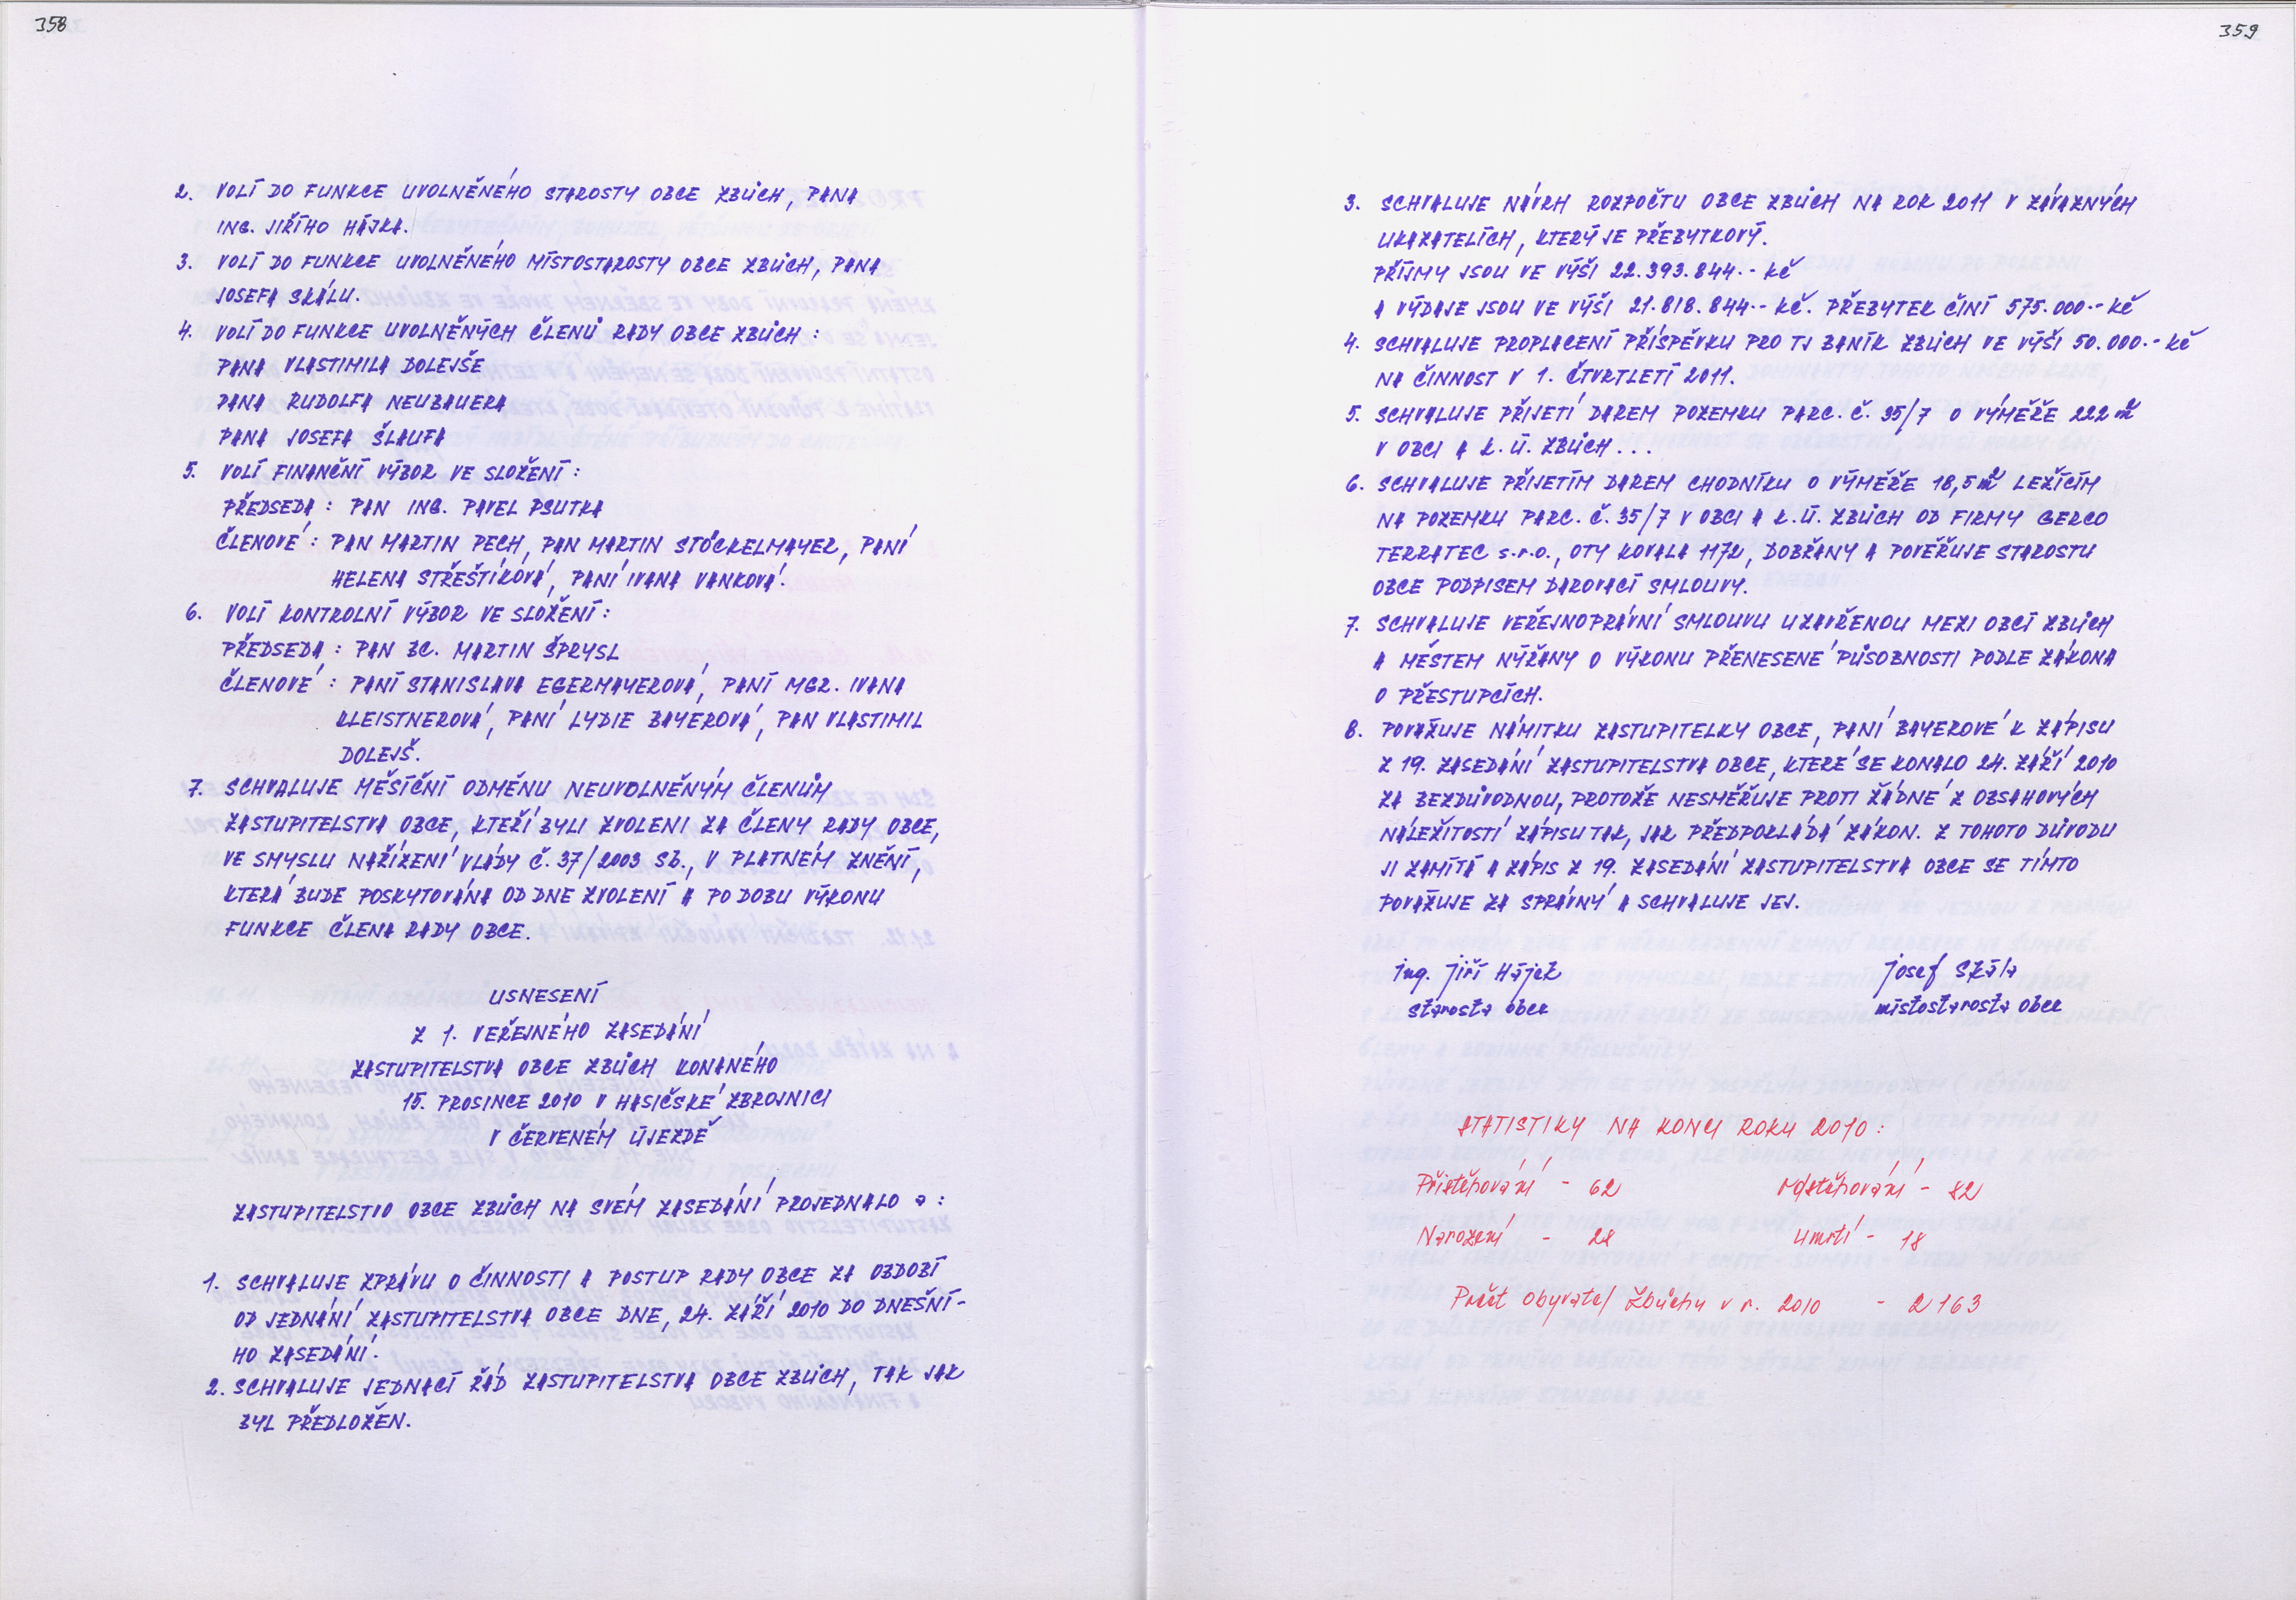 358
2. VOLÍ DO FUNKCE UVOLNĚNÉHO STAROSTY OBCE ZBŮCH, PANA
ING. JIŘÍHO HÁJKA.
3. VOLÍ DO FUNKCE UVOLNĚNÉHO MÍSTOSTAROSTY OBCE ZBŮCH, PANA
JOSEFA SKÁLU.
4. VOLÍ DO FUNKCE UVOLNĚNÝCH ČLENŮ RADY OBCE ZBŮCH :
PANA VLASTIMILA DOLEJŠE
PANA RUDOLFA NEUBAUERA
PANA JOSEFA ŠLAUFA
5. VOLÍ FINANČNÍ VÝBOR VE SLOŽENÍ :
PŘEDSEDA : PAN ING. PAVEL PSUTKA
ČLENOVÉ : PAN MARTIN PECH, PAN MARTIN STÖCKELMAYER, PANÍ
HELENA STŘEŠTÍKOVÁ, PANÍ IVANA VANKOVÁ.
6. VOLÍ KONTROLNÍ VÝBOR VE SLOŽENÍ :
PŘEDSEDA : PAN BC. MARTIN ŠPRYSL
ČLENOVÉ : PANÍ STANISLAVA EGERMAYEROVÁ, PANÍ MGR. IVANA
KLEISTNEROVÁ, PANÍ LYDIE BAYEROVÁ, PAN VLASTIMIL
DOLEJŠ.
7. SCHVALUJE MĚSÍČNÍ ODMĚNU NEUVOLNĚNÝM ČLENŮM
ZASTUPITELSTVA OBCE, KTEŘÍ BYLI ZVOLENI ZA ČLENY RADY OBCE,
VE SMYSLU NAŘÍZENÍ VLÁDY Č. 37/2003 Sb., V PLATNÉM ZNĚNÍ,
KTERÁ BUDE POSKYTOVÁNA OD DNE ZVOLENÍ A PO DOBU VÝKONU
FUNKCE ČLENA RADY OBCE.
USNESENÍ
Z 1. VEŘEJNÉHO ZASEDÁNÍ
ZASTUPITELSTVA OBCE ZBŮCH KONANÉHO
15. PROSINCE 2010 V HASIČSKÉ ZBROJNICI
V ČERVENÉM ÚJEZDĚ
ZASTUPITELSTVO OBCE ZBŮCH NA SVÉM ZASEDÁNÍ PROJEDNALO a :
1. SCHVALUJE ZPRÁVU O ČINNOSTI A POSTUP RADY OBCE ZA OBDOBÍ
OD JEDNÁNÍ ZASTUPITELSTVA OBCE DNE, 24. ZÁŘÍ 2010 DO DNEŠNÍ-
HO ZASEDÁNÍ.
2. SCHVALUJE JEDNACÍ ŘÁD ZASTUPITELSTVA OBCE ZBŮCH, TAK JAK
BYL PŘEDLOŽEN.
359
3. SCHVALUJE NÁVRH ROZPOČTU OBCE ZBŮCH NA ROK 2011 V ZÁVAZNÝCH
UKAZATELÍCH, KTERÝ JE PŘEBYTKOVÝ.
PŘÍJMY JSOU VE VÝŠI 22.393.844.- Kč
A VÝDAJE JSOU VE VÝŠI 21.818.844.- Kč. PŘEBYTEK ČINÍ 575.000.- Kč
4. SCHVALUJE PROPLACENÍ PŘÍSPĚVKU PRO TJ BANÍK ZBŮCH VE VÝŠI 50.000.- Kč
NA ČINNOST V 1. ČTVRTLETÍ 2011.
5. SCHVALUJE PŘIJETÍ DAREM POZEMKU PARC. Č. 35/7 O VÝMĚŘE 222 m²
V OBCI A K.Ú. ZBŮCH ...
6. SCHVALUJE PŘIJETÍM DAREM CHODNÍKU O VÝMĚŘE 18,5 m² LEŽÍCÍM
NA POZEMKU PARC. Č. 35/7 V OBCI A K.Ú. ZBŮCH OD FIRMY GERCO
TERRATEC s.r.o., OTY KOVALA 1172, DOBŘANY A POVĚŘUJE STAROSTU
OBCE PODPISEM DAROVACÍ SMLOUVY.
7. SCHVALUJE VEŘEJNOPRÁVNÍ SMLOUVU UZAVŘENOU MEZI OBCÍ ZBŮCH
A MĚSTEM NÝŘANY O VÝKONU PŘENESENÉ PŮSOBNOSTI PODLE ZÁKONA
O PŘESTUPCÍCH.
8. POVAŽUJE NÁMITKU ZASTUPITELKY OBCE, PANÍ BAYEROVÉ K ZÁPISU
Z 19. ZASEDÁNÍ ZASTUPITELSTVA OBCE, KTERÉ SE KONALO 24. ZÁŘÍ 2010
ZA BEZDŮVODNOU, PROTOŽE NESMĚŘUJE PROTI ŽÁDNÉ Z OBSAHOVÝCH
NÁLEŽITOSTÍ ZÁPISU TAK, JAK PŘEDPOKLÁDÁ ZÁKON. Z TOHOTO DŮVODU
JI ZAMÍTÁ A ZÁPIS Z 19. ZASEDÁNÍ ZASTUPITELSTVA OBCE SE TÍMTO
POVAŽUJE ZA SPRÁVNÝ A SCHVALUJE JEJ.
ing. Jiří Hájek Josef Skála
starosta obce místostarosta obce
STATISTIKY NA KONCI ROKU 2010 :
Přistěhování - 62 odstěhování - 82
Narození - 28 úmrtí - 18
Počet obyvatel Zbůchu v r. 2010 - 2163